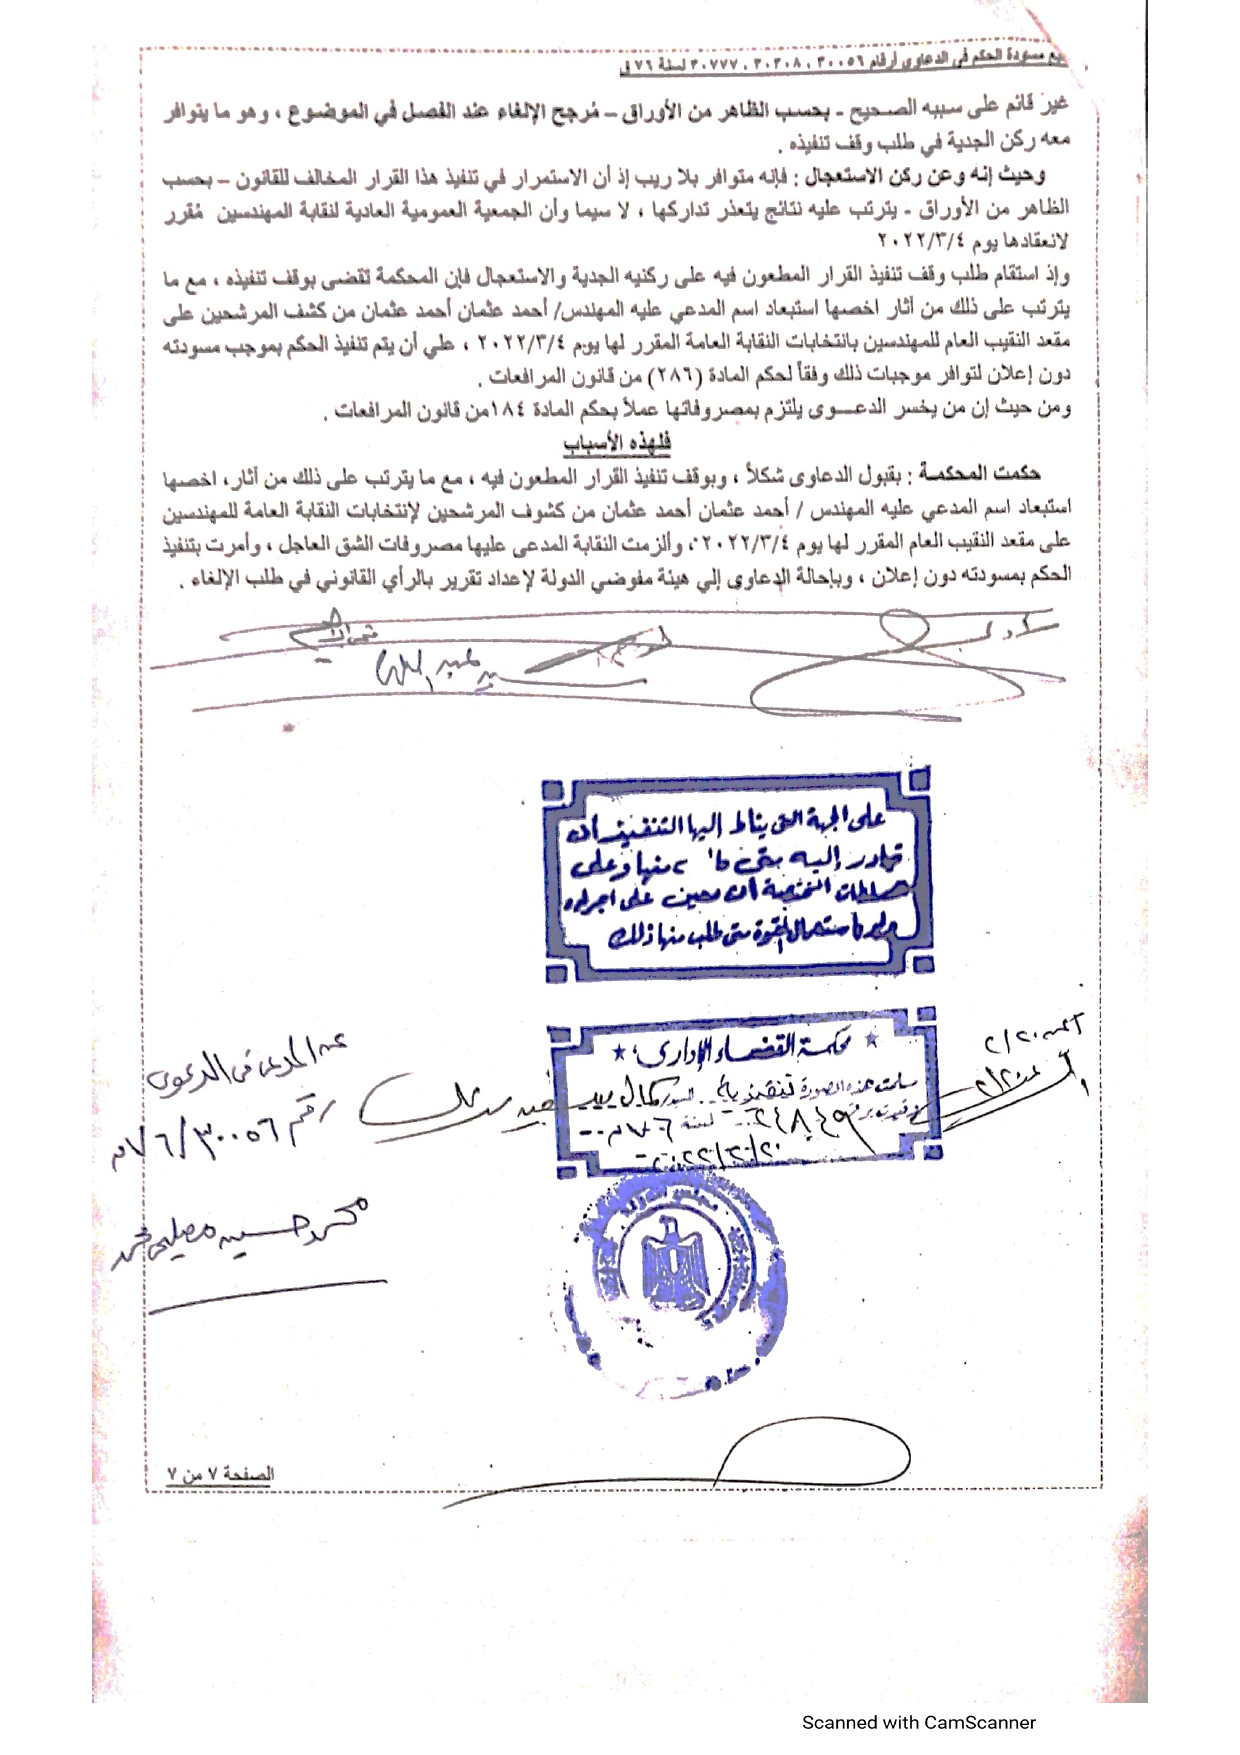 مسودة الحكم في الدعاوى أرقام ٣٠٠٥٦ ، ٣٠٣٠٨ ، ٣٠٧٧٧ لسنة ٧٦ ق
غير قائم على سببه الصحيح - بحسب الظاهر من الأوراق – مُرجح الإلغاء عند الفصل في الموضوع ، وهو ما يتوافر
معه ركن الجدية في طلب وقف تنفيذه .
وحيث إنه وعن ركن الاستعجال : فإنه متوافر بلا ريب إذ أن الاستمرار في تنفيذ هذا القرار المخالف للقانون – بحسب
الظاهر من الأوراق - يترتب عليه نتائج يتعذر تداركها ، لا سيما وأن الجمعية العمومية العادية لنقابة المهندسين مُقرر
لانعقادها يوم ٢٠٢٢/٣/٤
وإذ استقام طلب وقف تنفيذ القرار المطعون فيه على ركنيه الجدية والاستعجال فإن المحكمة تقضى بوقف تنفيذه ، مع ما
يترتب على ذلك من آثار اخصها استبعاد اسم المدعي عليه المهندس/ أحمد عثمان أحمد عثمان من كشف المرشحين على
مقعد النقيب العام للمهندسين بانتخابات النقابة العامة المقرر لها يوم ٢٠٢٢/٣/٤ ، علي أن يتم تنفيذ الحكم بموجب مسودته
دون إعلان لتوافر موجبات ذلك وفقاً لحكم المادة (٢٨٦) من قانون المرافعات .
ومن حيث إن من يخسر الدعـــوى يلتزم بمصروفاتها عملاً بحكم المادة ١٨٤من قانون المرافعات .
فلهذه الأسباب
حكمت المحكمة : بقبول الدعاوى شكلاً ، وبوقف تنفيذ القرار المطعون فيه ، مع ما يترتب على ذلك من آثار، اخصها
استبعاد اسم المدعي عليه المهندس / أحمد عثمان أحمد عثمان من كشوف المرشحين لإنتخابات النقابة العامة للمهندسين
على مقعد النقيب العام المقرر لها يوم ٢٠٢٢/٣/٤، وألزمت النقابة المدعى عليها مصروفات الشق العاجل ، وأمرت بتنفيذ
الحكم بمسودته دون إعلان ، وبإحالة الدعاوى إلي هيئة مفوضي الدولة لإعداد تقرير بالرأي القانوني في طلب الإلغاء .
على الجهة التى يناط إليها التنفيذ أن
تبادر إليه متى طلب منها وعلى
السلطات المختصة أن تعين على اجرائه
ولو باستعمال القوة متى طلب منها ذلك
محكمة القضاء الإدارى
سلمت هذه الصورة تنفيذية
لسنة ٧٦
٢٠٢٢/٢/٢٠
عن المدعى فى الدعوى
رقم ٣٠٠٥٦/٧٦
محمد حسين
الصفحة ٧ من ٧
Scanned with CamScanner